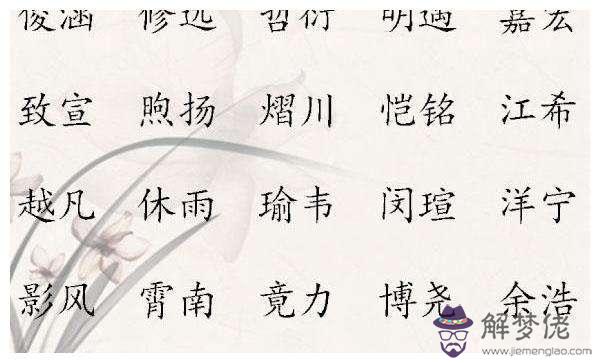 俊涵 修远 哲衍 明遇 嘉宏
致宣 煦扬 熠川 恺铭 江希
越凡 休雨 瑜韦 闵瑄 洋宁
影风 霄南 竟力 博尧 余浩
解梦佬
www.jiemenglao.com